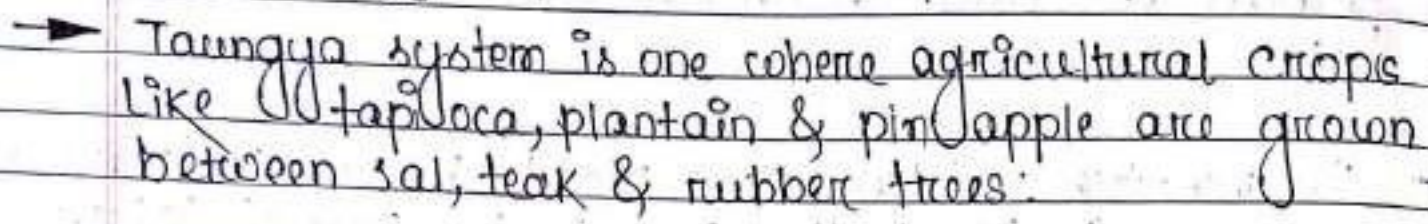 → Taungya system is one where agricultural crops
like tapioca, plantain & pinapple are grown
between sal, teak & rubber trees.